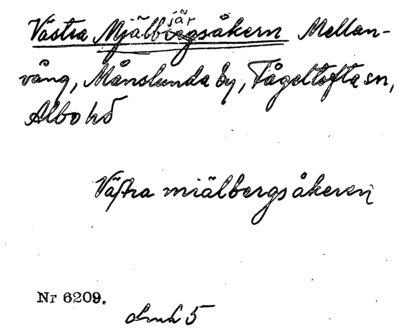 Västra Mjälbergsåkern Mellan-
vång, Månslunda by, Fågeltofta sn,
Albo hd
Västra miälbergsåkeren
Nr 6209.